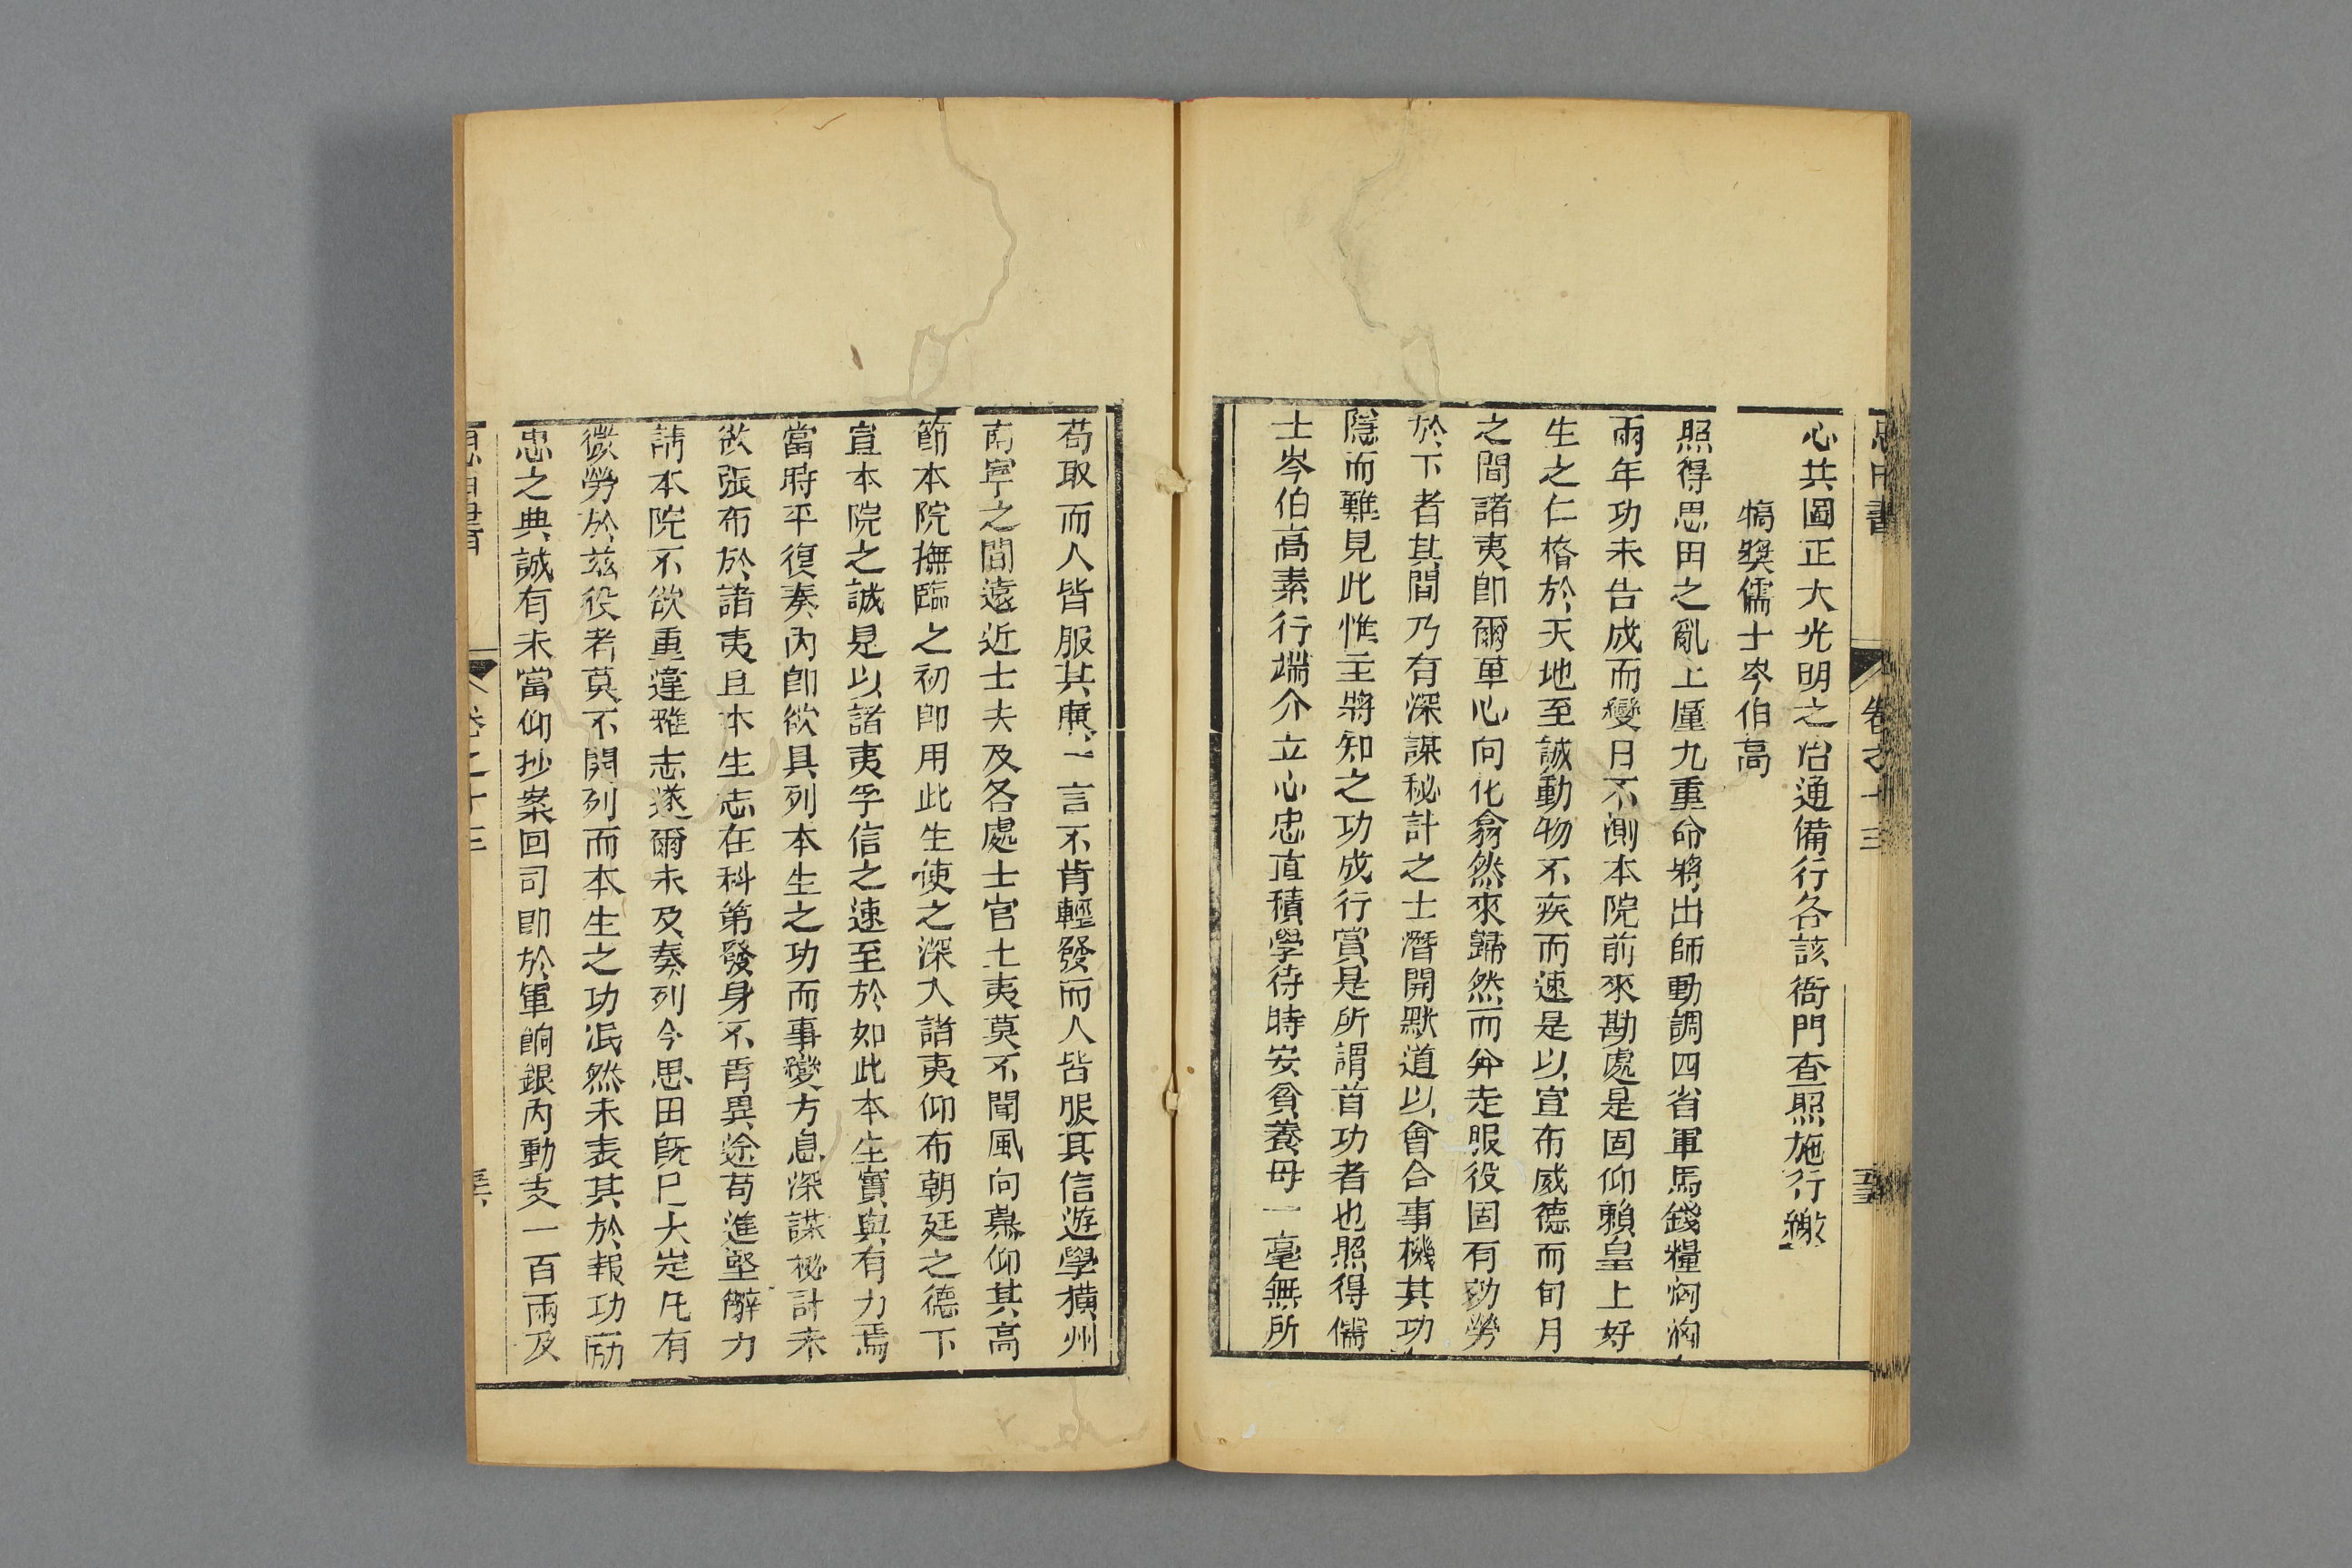 心共圖正大光明之治通備行各該衙門查照施行繳
犒奬儒士岑伯高
照得思田之亂上厪九重命將出師動調四省軍馬錢糧洶洶
兩年功未告成而變日不測本院前來勘處是固仰賴皇上好
生之仁格於天地至誠動物不疾而速是以宣布威德而旬月
之間諸夷卽爾革心向化翕然來歸然而奔走服役固有効勞
於下者其間乃有深謀秘計之士潛開默道以會合事機其功
隱而難見此惟主將知之功成行賞是所謂首功者也照得儒
士岑伯高素行端介立心忠直積學待時安貧養母一毫無所
苟取而人皆服其廉一言不肯輕發而人皆服其信遊學橫州
南寧之間遠近士夫及各處士官土夷莫不聞風向慕仰其高
節本院撫臨之初卽用此生使之深入諸夷仰布朝廷之德下
宣本院之誠是以諸夷孚信之速至於如此本生實與有力焉
當時平復奏內卽欲具列本生之功而事變方息深謀秘計未
欲張布於諸夷且本生志在科第發身不肯異途苟進堅辭力
請本院不欲重違雅志遂爾未及奏列今思田旣巳大定凡有
微勞於兹役者莫不開列而本生之功泯然未表其於報功勵
忠之典誠有未當仰抄案回司卽於軍餉銀內動支一百兩及
卷之十三